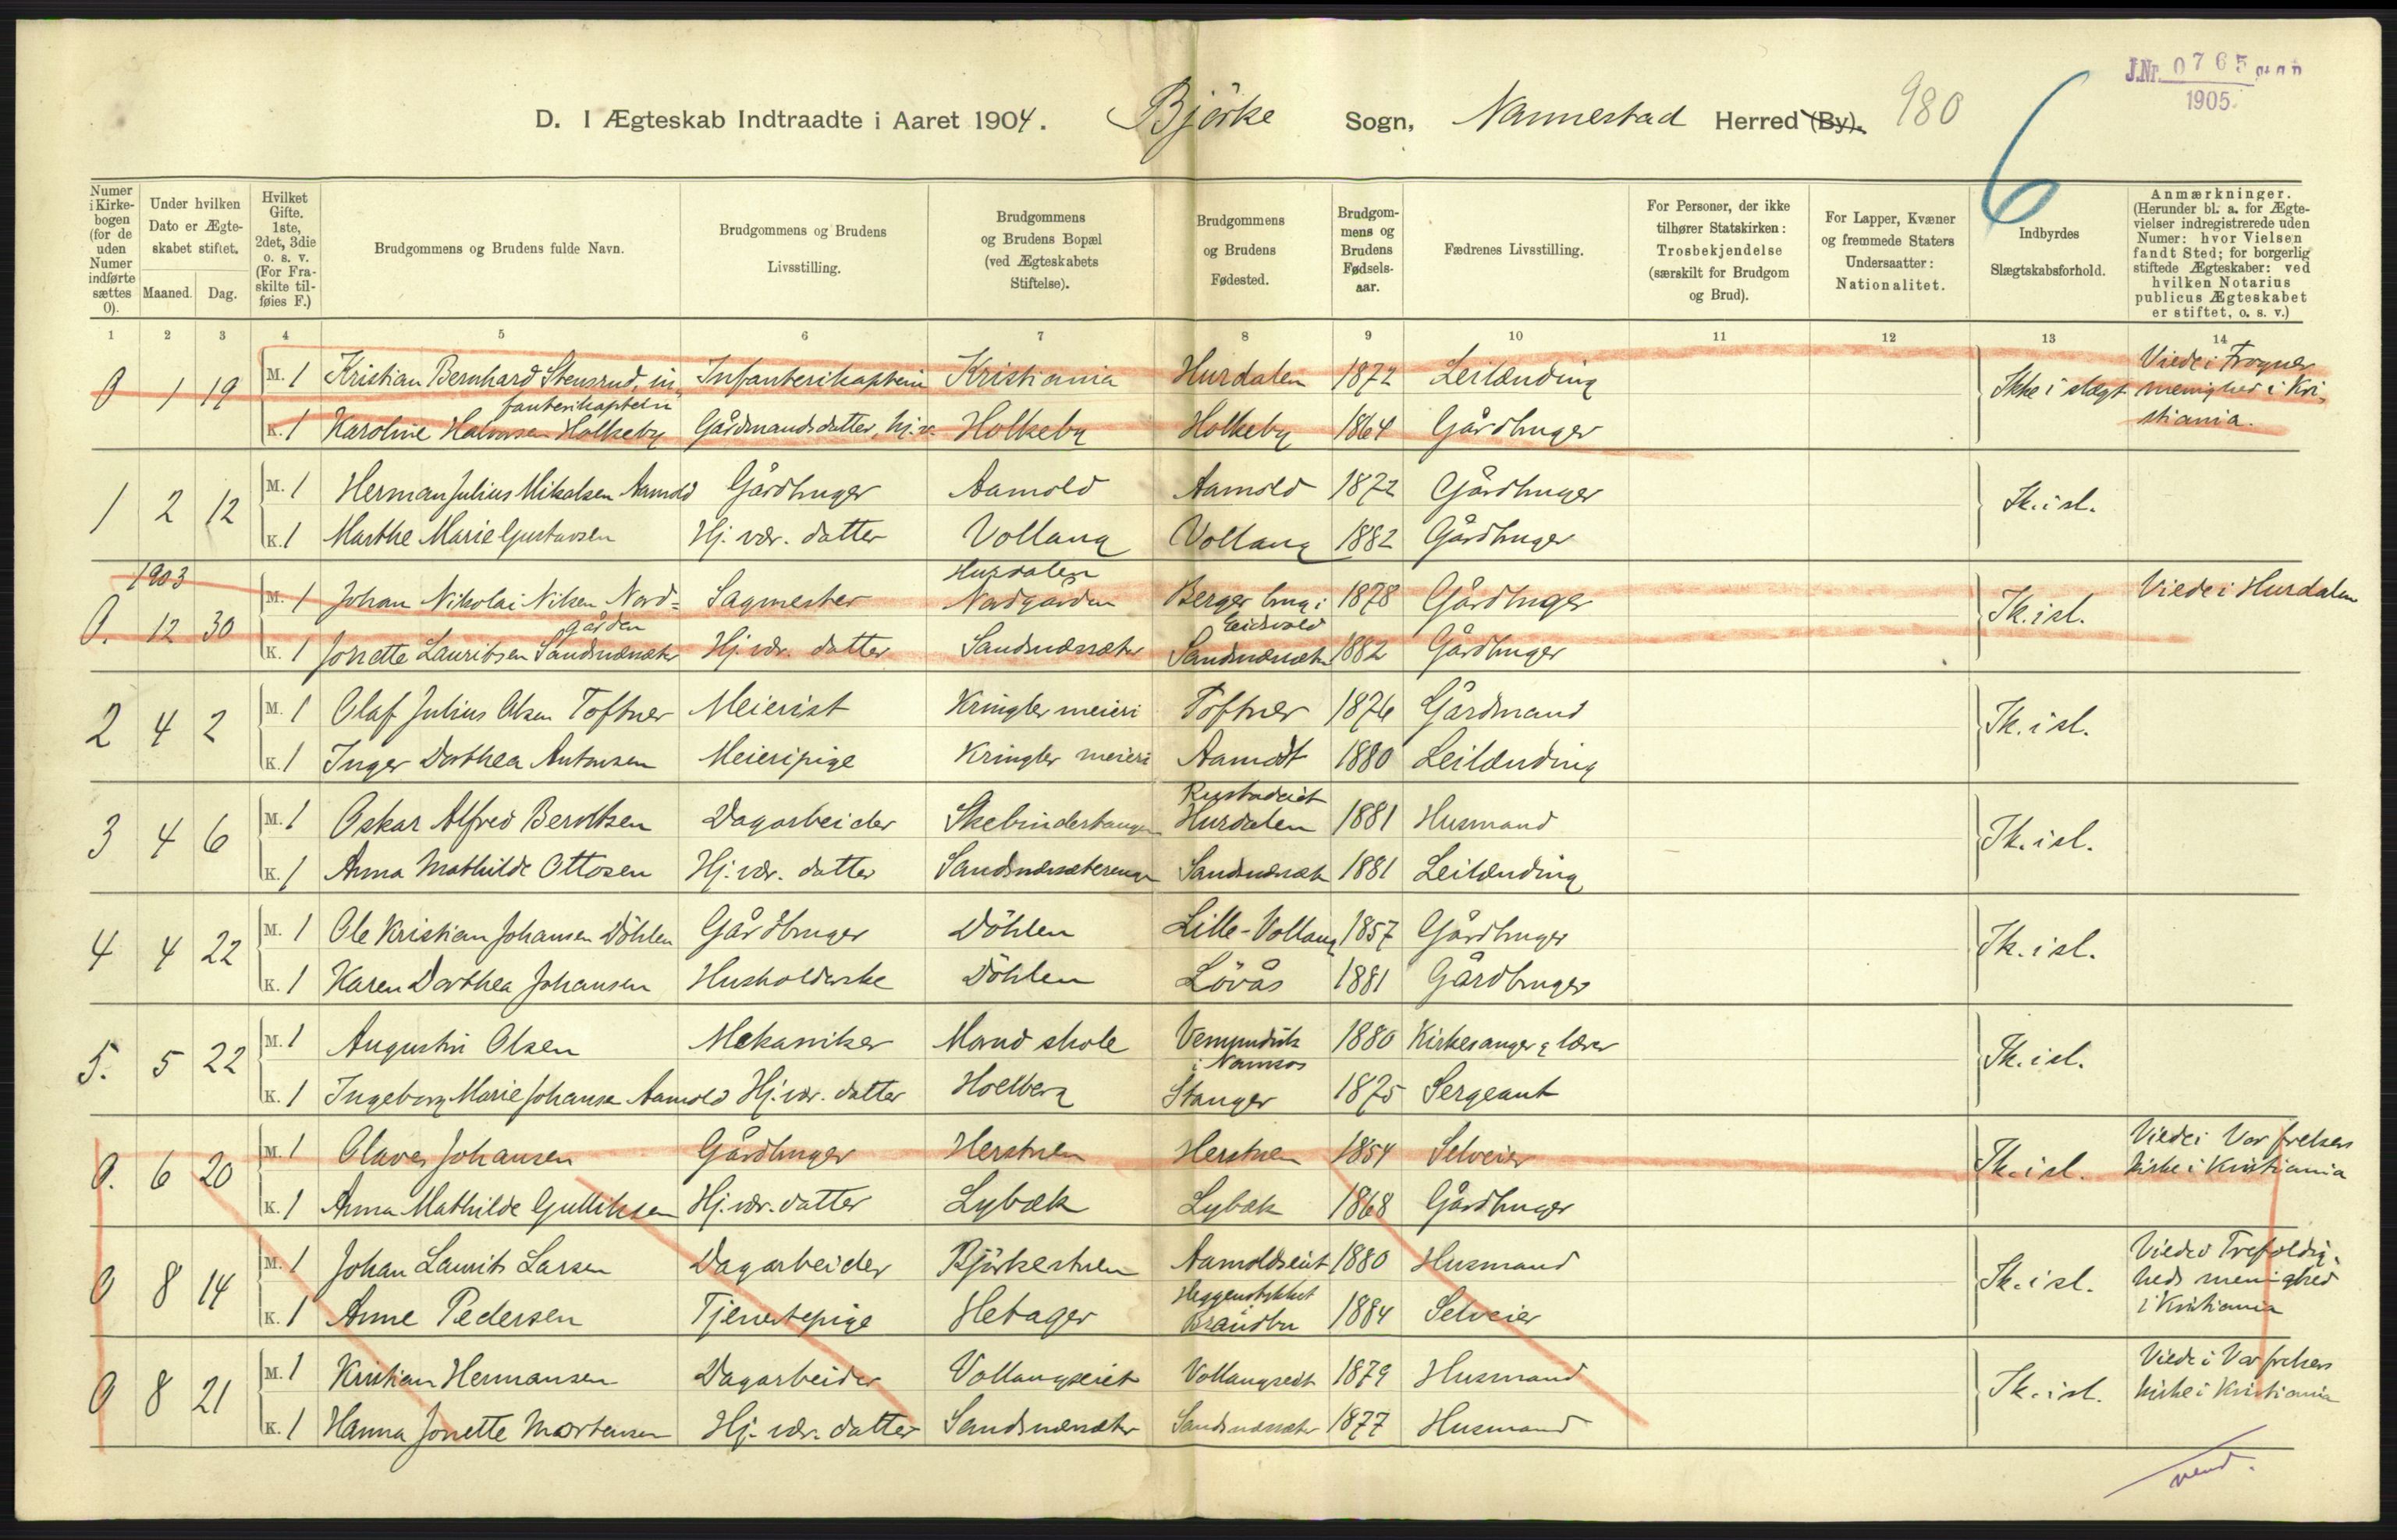 J.Nr. 0765
1905.
D. I Ægteskab Indtraadte i Aaret 1904. Björke Sogn, Nannestad Herred (By). 980
6
Numer i Kirkebogen (for de uden Numer indførte sættes 0).
Under hvilken Dato er Ægteskabet stiftet.
Maaned. Dag.
Hvilket Gifte. 1ste, 2det, 3die o. s. v. (For Fraskilte tilføies F.)
Brudgommens og Brudens fulde Navn.
Brudgommens og Brudens Livsstilling.
Brudgommens og Brudens Bopæl (ved Ægteskabets Stiftelse).
Brudgommens og Brudens Fødested.
Brudgommens og Brudens Fødselsaar.
Fædrenes Livsstilling.
For Personer, der ikke tilhører Statskirken: Trosbekjendelse (særskilt for Brudgom og Brud).
For Lapper, Kvæner og fremmede Staters Undersaatter: Nationalitet.
Indbyrdes Slægtskabsforhold.
Anmærkninger. (Herunder bl. a. for Ægtevielser indregistrerede uden Numer: hvor Vielsen fandt Sted; for borgerlig stiftede Ægteskaber: ved hvilken Notarius publicus Ægteskabet er stiftet, o. s. v.)
1 2 3 4 5 6 7 8 9 10 11 12 13 14
0 1 19 M. 1 Kristian Bernhard Stensrud, infanterikaptein Infanterikaptein Kristiania Hurdalen 1872 Leilænding Ikke i slægt Viede i Frogner menighed i Kristiania.
K. 1 Karoline Halvorsen Holkeby Gårdmandsdatter, hj.v. Holkeby Holkeby 1864 Gårdbruger
1 2 12 M. 1 Herman Julius Mikalsen Aamold Gårdbruger Aamold Aamold 1872 Gårdbruger Ik. i sl.
K. 1 Marthe Marie Gustavsen Hj. vær. datter Vollaug Vollaug 1882 Gårdbruger
1903
0. 12 30 M. 1 Johan Nikolai Nilsen Nordgården Sagmester Hurdalen Nordgården Berger brug i Eidsvold 1878 Gårdbruger Ik. i sl. Viede i Hurdalen
K. 1 Jonette Lauritsen Sandsnæssæter Hj. vær. datter Sandsnæssæter Sandsnæssæter 1882 Gårdbruger
2 4 2 M. 1 Olaf Julius Olsen Toftner Meierist Kringler meieri Toftner 1876 Gårdmand Ik. i sl.
K. 1 Inger Dorthea Antonsen Meieripige Kringler meieri Aamodt 1880 Leilænding
3 4 6 M. 1 Oskar Alfred Berntsen Dagarbeider Skebindertangen Rustadeiet Hurdalen 1881 Husmand Ik. i sl.
K. 1 Anna Mathilde Ottosen Hj. vær. datter Sandsnæssæterengen Sandsnæssæter 1881 Leilænding
4 4 22 M. 1 Ole Kristian Johansen Döhlen Gårdbruger Döhlen Lille-Vollaug 1857 Gårdbruger Ik. i sl.
K. 1 Karen Dorthea Johansen Husholderske Döhlen Lövås 1881 Gårdbruger
5. 5 22 M. 1 Augustin Olsen Mekaniker Maud skole Vemundvik i Namsos 1880 Kirkesanger & lærer Ik. i sl.
K. 1 Ingeborg Marie Johanse Aamold Hj. vær. datter Hoelberg Stanger 1875 Sergeant
0. 6 20 M. 1 Olaves Johansen Gårdbruger Herstuen Herstuen 1854 Selveier Ik. i sl. Viede i Vor frelsers kirke i Kristiania
K. 1 Anna Mathilde Gulliksen Hj. vær. datter Lybæk Lybæk 1868 Gårdbruger
0 8 14 M. 1 Johan Laurits Larsen Dagarbeider Björkestuen Aamoldseiet 1880 Husmand Ik. i sl. Viede i Trefoldigheds menighed i Kristiania
K. 1 Anne Pedersen Tjenestepige Hebager Heggenstykket Brandbu 1884 Selveier
0 8 21 M. 1 Kristian Hermansen Dagarbeider Vollaugseiet Vollaugseiet 1879 Husmand Ik. i sl. Viede i Vor frelsers kirke i Kristiania
K. 1 Hanna Jonette Mortensen Hj. vær. datter Sandsnæssæter Sandsnæssæter 1877 Husmand
vend.